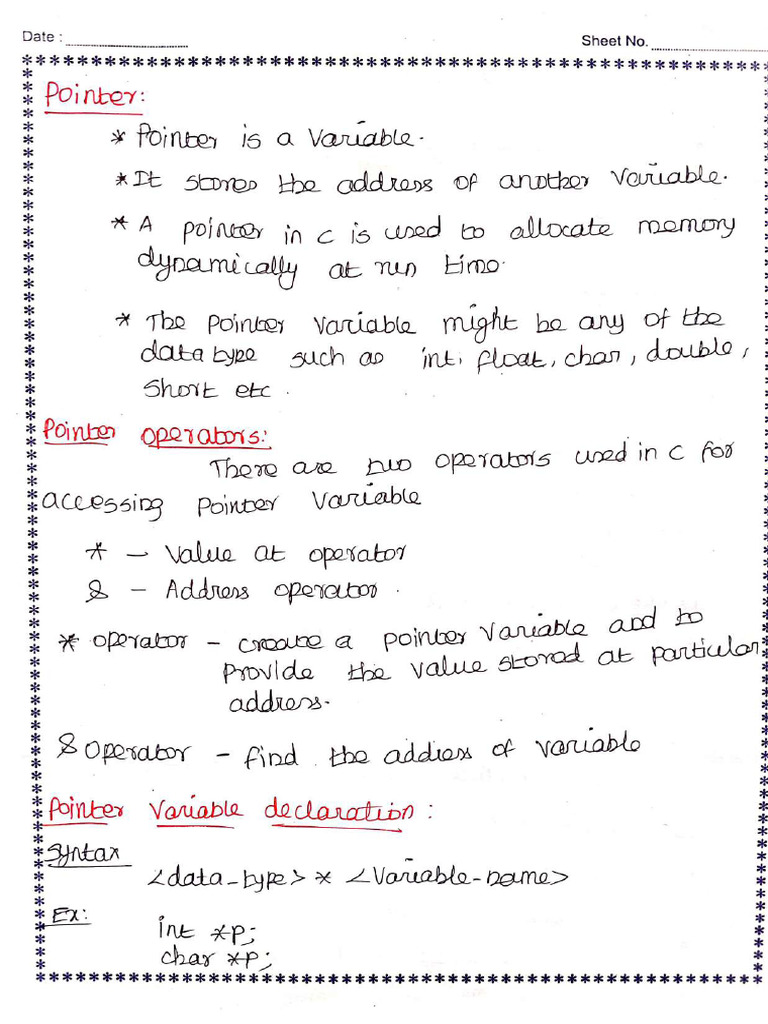 Date :
Sheet No.
Pointer:
* Pointer is a Variable.
* It stores the address of another Variable.
* A pointer in c is used to allocate memory
dynamically at run time.
* The pointer variable might be any of the
data type such as int, float, char, double,
short etc.
Pointer operators:
There are two operators used in c for
accessing pointer variable
* - Value at operator
& - Address operator.
* operator - create a pointer variable and to
provide the value stored at particular
address.
& operator - find the address of variable
Pointer Variable declaration:
Syntax
<data-type> * <Variable-name>
Ex:
int *p;
char *p;